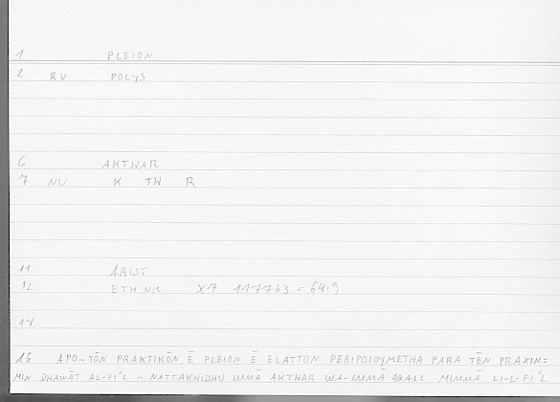 1 PLEION
2 RV POLYS
6 AKTHAR
7 NU K TH R
11 ARIST
12 ETH NIC X7 1177b3 = 64.9
14
16 APO-TŌN PRAKTIKŌN Ē PLEION Ē ELATTON PERIPOIOYMETHA PARA TĒN PRAXIN =
MIN DHAWĀT AL-FIʿL - NATTAKHIDHU IMMĀ AKTHAR WA-IMMĀ AQALL MIMMĀ LI-L-FIʿL